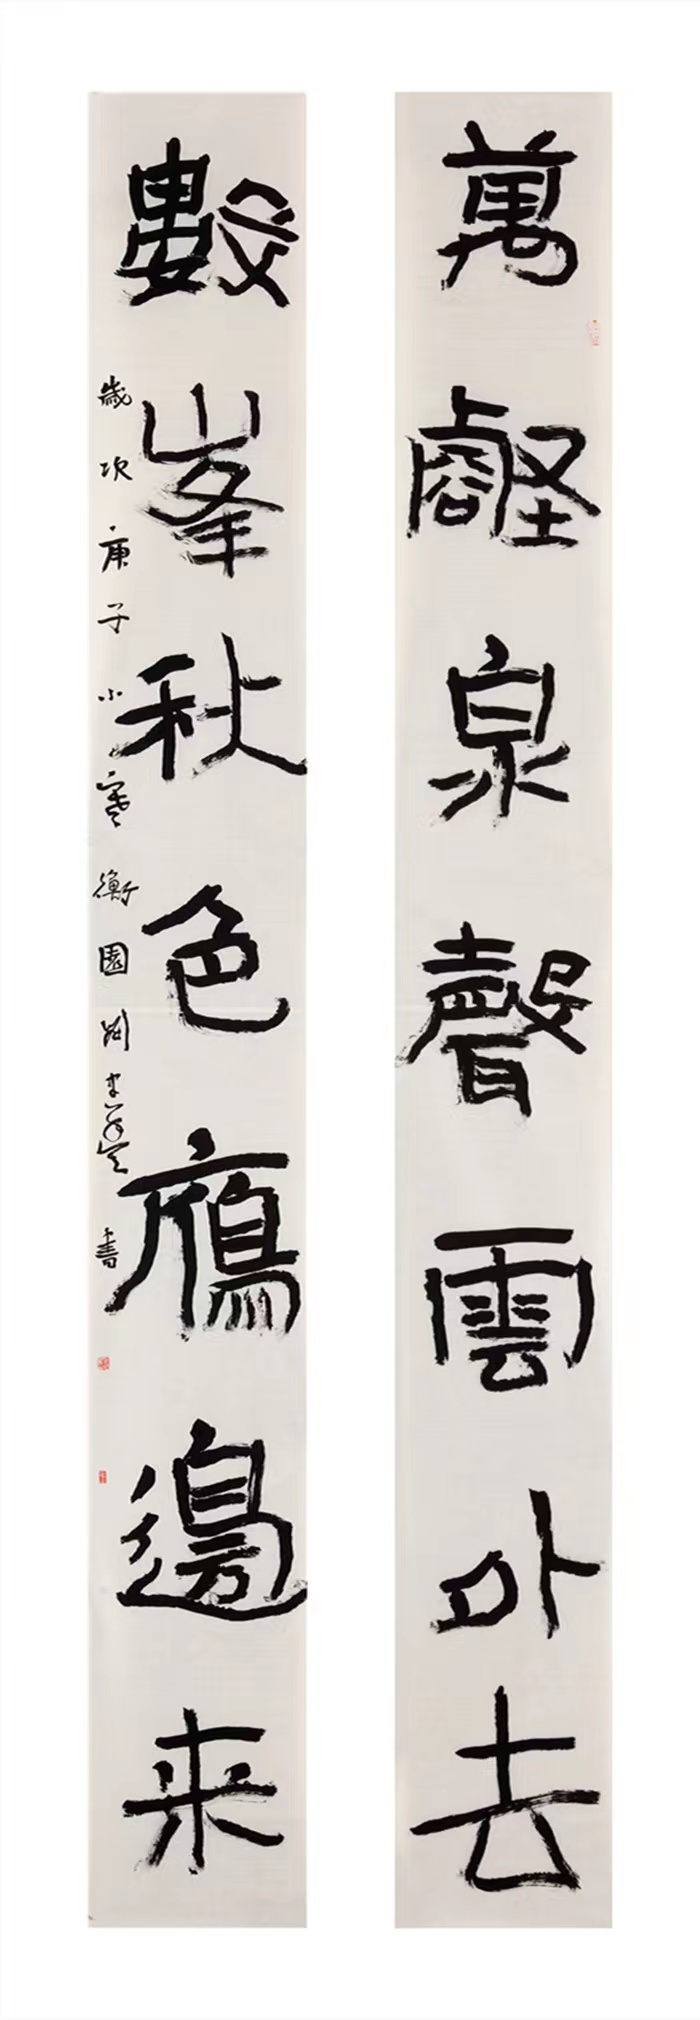 萬壑泉聲雲外去
數峯秋色鴈邊来
歲次庚子小寒衡園剛書